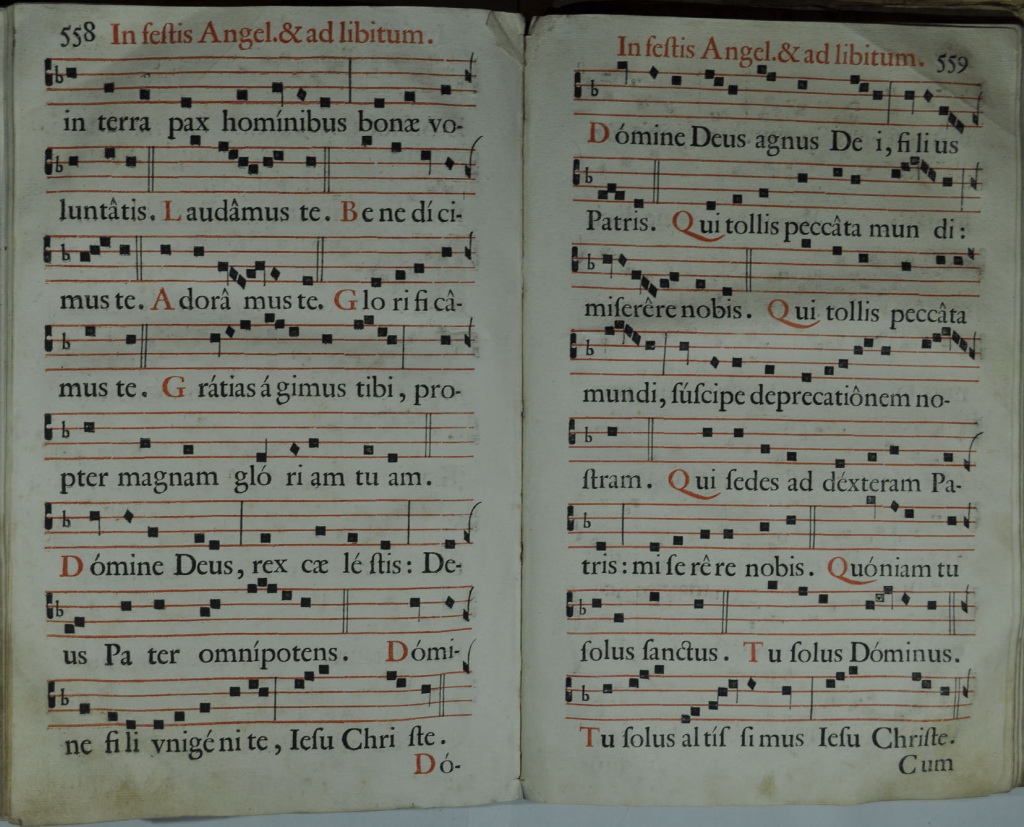 558 In feſtis Angel.& ad libitum.
in terra pax homínibus bonæ vo-
luntâtis. Laudâmus te. Bene díci-
mus te. Adorâ mus te. Glorificâ-
mus te. Grátias ágimus tibi, pro-
pter magnam glóriam tuam.
Dómine Deus, rex cæ léſtis: De-
us Pater omnípotens. Dómi-
ne fili vnigénite, Ieſu Chriſte.
Dó-
In feſtis Angel.& ad libitum. 559
Dómine Deus agnus Dei, filius
Patris. Qui tollis peccâta mundi:
miſerêre nobis. Qui tollis peccâta
mundi, ſúſcipe deprecatiônem no-
ſtram. Qui ſedes ad déxteram Pa-
tris: miſerêre nobis. Quóniam tu
ſolus ſanctus. Tu ſolus Dóminus.
Tu ſolus altíſſimus Ieſu Chriſte.
Cum